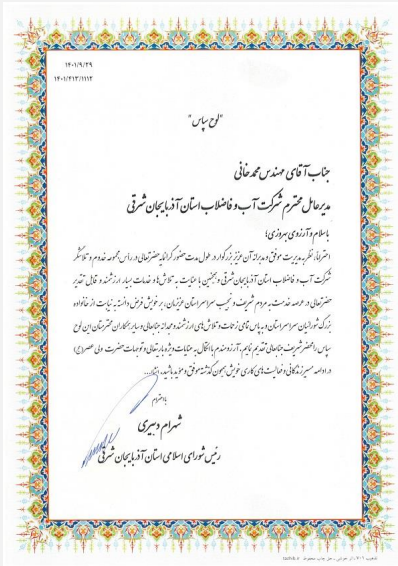 ۱۴۰۱/۹/۲۹
۱۴۰۱/۴۱۳/۱۱۱۲
"لوح سپاس"
جناب آقای مهندس محمدخانی
مدیرعامل محترم شرکت آب و فاضلاب استان آذربایجان شرقی
با سلام و آرزوی بهروزی؛
احتراماً، نظر به مدیریت موفق و مدبرانه آن عزیز بزرگوار در طول مدت حضور گرانمایه حضرتعالی در رأس مجموعه خدوم و تلاشگر
شرکت آب و فاضلاب استان آذربایجان شرقی و همچنین با عنایت به تلاش‌ها و خدمات بسیار ارزشمند و قابل تقدیر
حضرتعالی در عرصه خدمت به مردم شریف و نجیب سراسر استان عزیزمان، بر خویش فرض دانسته به نیابت از خانواده
بزرگ شورائیان سراسر استان و به پاس تمامی زحمات و تلاش‌های ارزشمند و مجدانه جنابعالی و سایر همکاران محترمتان این لوح
سپاس را محضر شریف جنابعالی تقدیم نمایم. آرزومندم با اتکال به عنایات ویژه باریتعالی و توجهات حضرت ولی عصر(عج)
در ادامه مسیر زندگانی و فعالیت‌های کاری خویش همچون گذشته موفق و مؤید باشید. انشاا...
با احترام
شهرام دبیری
رئیس شورای اسلامی استان آذربایجان شرقی